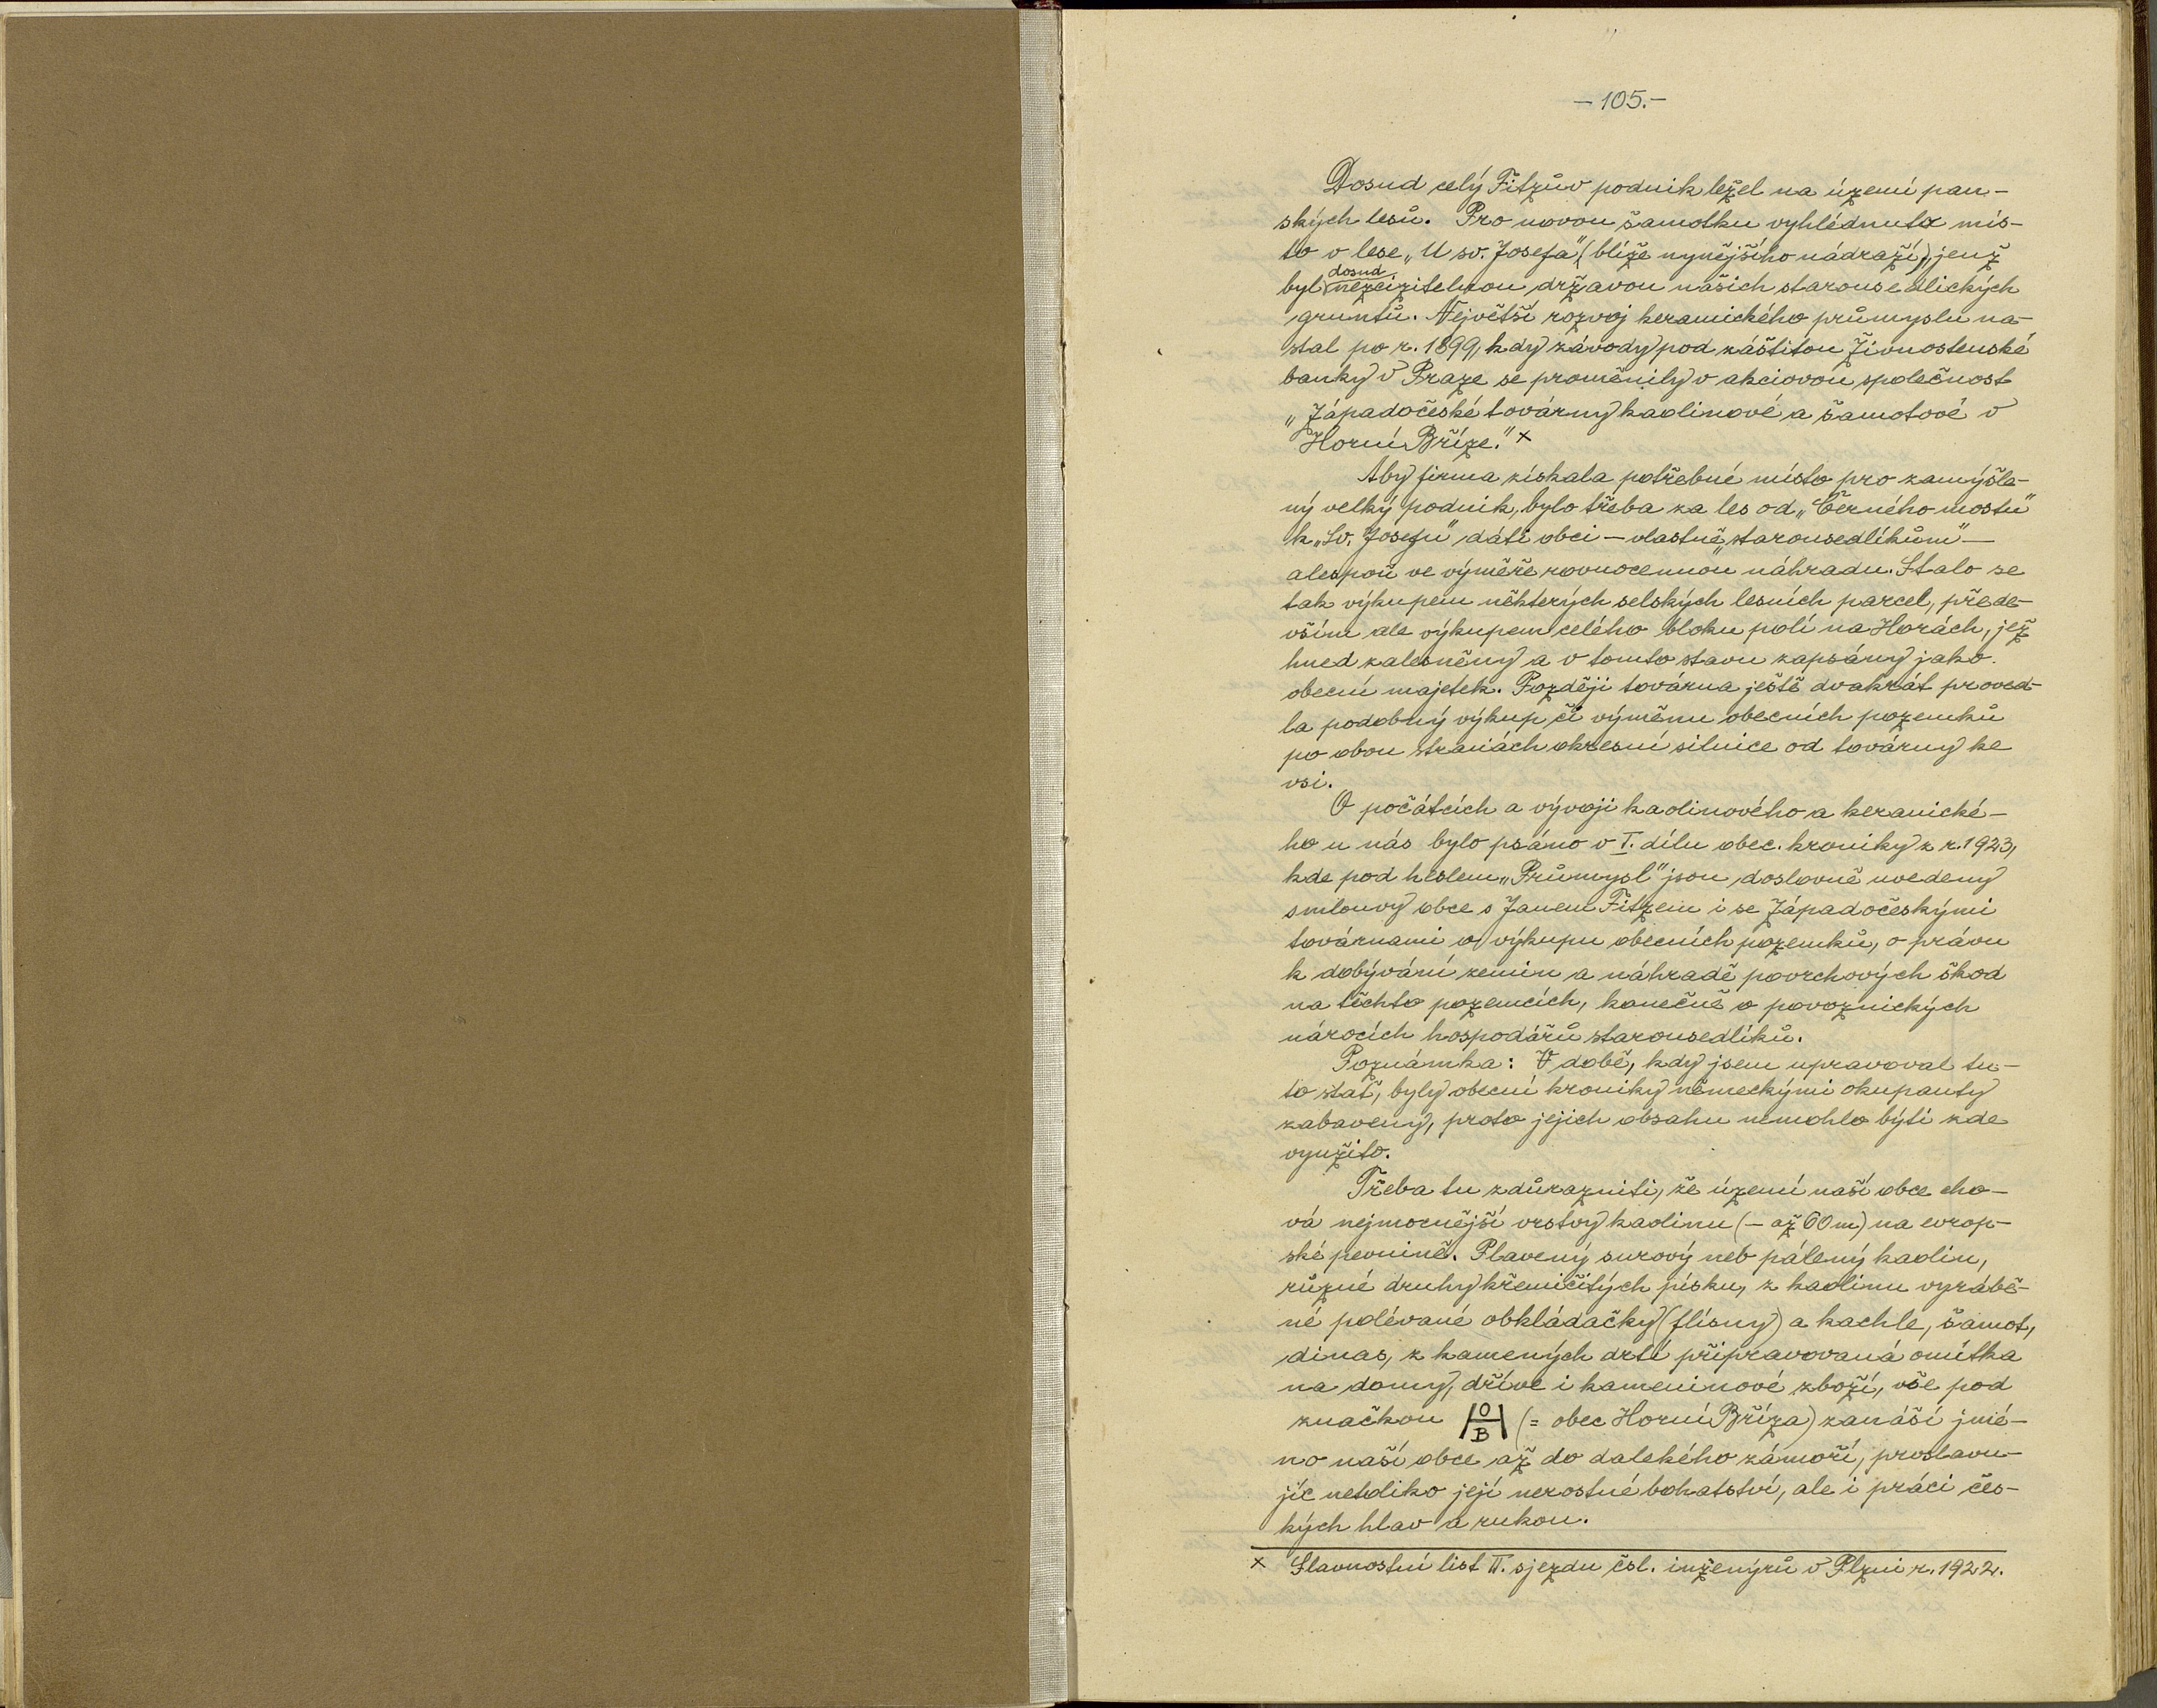 — 105. —
Dosud celý Fitzův podnik ležel na území pan-
ských lesů. Pro novou šamotku vyhlédnuto mís-
to v lese „U sv. Josefa" (blíže nynějšího nádraží), jenž
dosud
byl nezcizitelnou državou našich starousedlických
gruntů. Největší rozvoj keramického průmyslu na-
stal po r. 1899, kdy závody pod záštitou Živnostenské
banky v Praze se proměnily v akciovou společnost
„Západočeské továrny kaolinové a šamotové v
Horní Bříze." x
Aby firma získala potřebné místo pro zamýšle-
ný velký podnik, bylo třeba za les od „Černého mostu"
k „Sv. Josefu" dáti obci — vlastně „starousedlíkům" —
alespoň ve výměře rovnocennou náhradu. Stalo se
tak výkupem některých selských lesních parcel, přede-
vším ale výkupem celého bloku polí na Horách, jež
hned zalesněny a v tomto stavu zapsány jako
obecní majetek. Později továrna ještě dvakrát proved-
la podobný výkup či výměnu obecních pozemků
po obou stranách okresní silnice od továrny ke
vsi.
O počátcích a vývoji kaolinového a keranické-
ho u nás bylo psáno v I. dílu obec. kroniky z r. 1923,
kde pod heslem „Průmysl" jsou doslovně uvedeny
smlouvy obce s Janem Fitzem i se Západočeskými
továrnami o výkupu obecních pozemků, o právu
k dobývání zemin a náhradě povrchových škod
na těchto pozemcích, konečně o povoznických
nárocích hospodářů starousedlíků.
Poznámka: V době, kdy jsem upravoval tu-
to stať, byly obecní kroniky německými okupanty
zabaveny, proto jejich obsahu nemohlo býti zde
využito.
Třeba tu zdůrazniti, že území naší obce cho-
vá nejmocnější vrstvy kaolinu (— až 60 m) na evrop-
ské pevnině. Plavený surový neb pálený kaolin,
různé druhy křemičitých písku, z kaolinu vyrábě-
né polévané obkládačky (flísny) a kachle, šamot,
dinas, z kamených drtí připravovaná omítka
na domy, dříve i kameninové zboží, vše pod
značkou H O B (= obec Horní Bříza) zanáší jmé-
no naší obce až do dalekého zámoří, proslavu-
jíc netoliko její nerostné bohatství, ale i práci čes-
kých hlav a rukou.
x Slavnostní list II. sjezdu čsl. inženýrů v Plzni r. 1922.